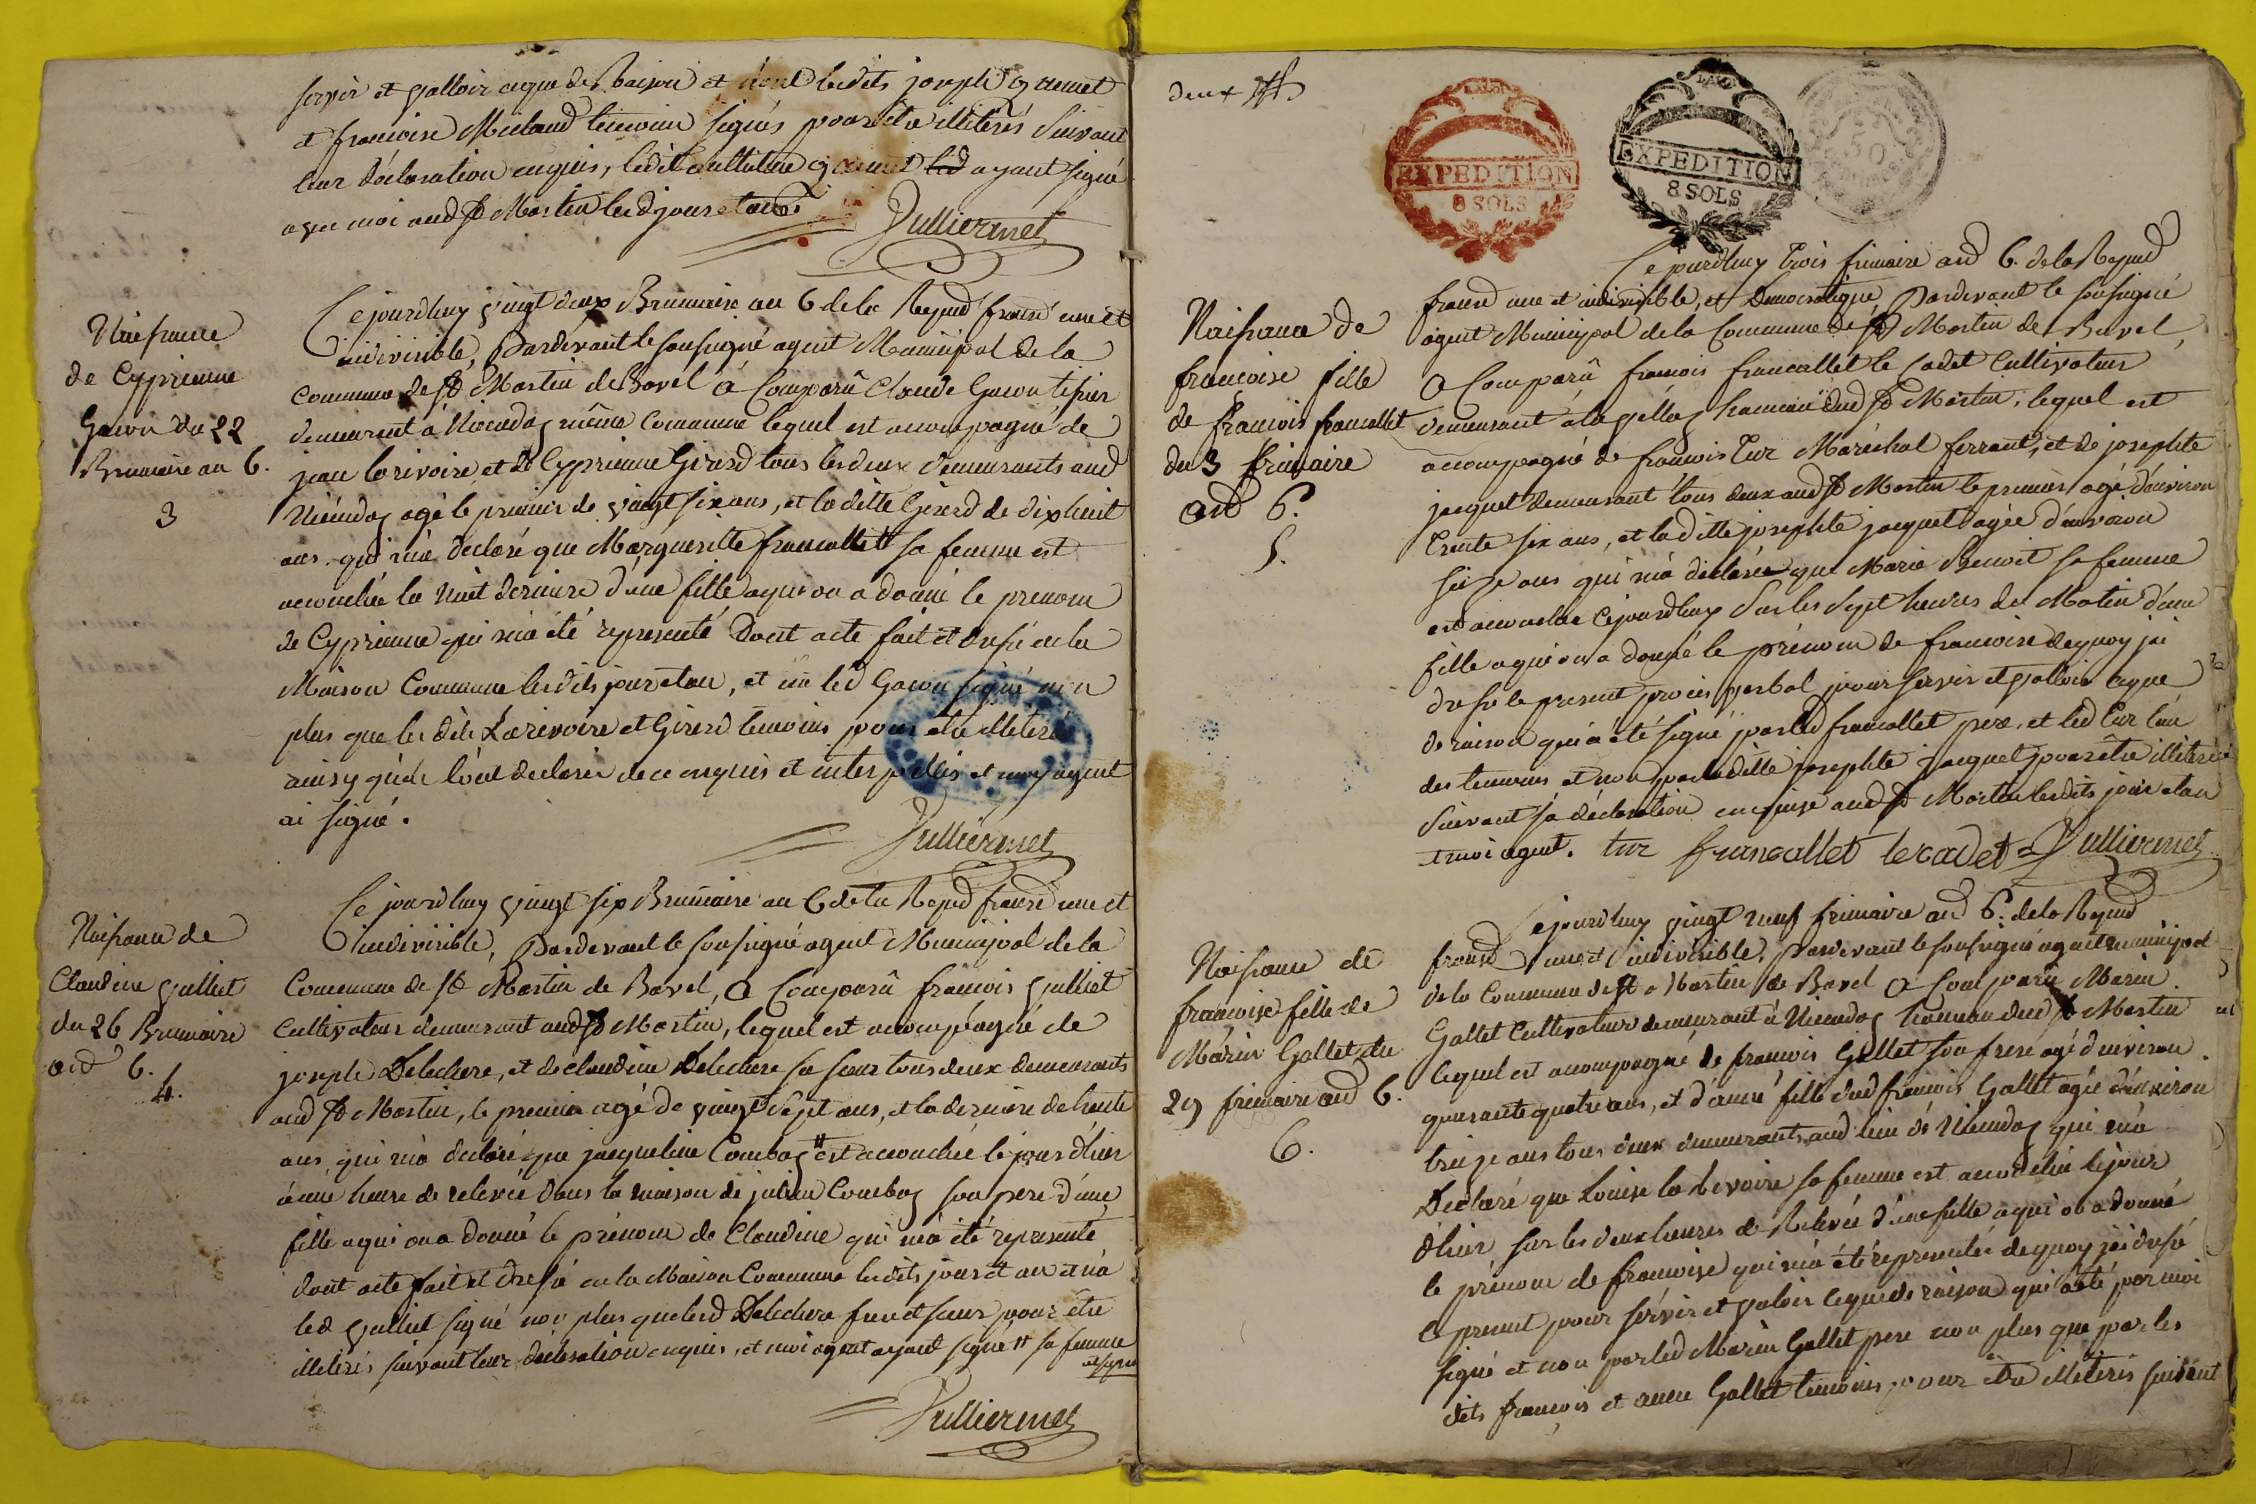 servir et valloir ce que de Raison et dont lesdits joseph
et francoise Micland temoins signés pour être illiterés suivant
leur déclaration enquis, ledit ayant signé
avec moi aud St Martin lesd jour et an
Julliermet
Naissance
de Cyprienne
Gacon du 22
Brumaire an 6.
3
Cejourdhuy vingt deux Brumaire an 6 de la Repud francd une et
indivisible, Pardevant le soussigné agent Municipal de la
Commune de St Martin de Bavel à Comparû Claude Gacon tissier
demeurant à Vieudog même Commune lequel est accompagné de
jean lorivoire et de Cyprienne Girerd tous les deux demeurants aud
Vieudog agé le premier de vingt six ans, et la ditte Girerd de dix huit
ans qui m'a declaré que Marguerite francallet sa femme est
accouchée la nuit derniere d'une fille a qui on a donné le prenom
de Cyprienne qui m'a été representé Dont acte fait et dressé en la
Maison Commune lesdits jour et an, et n'a led Gacon signé non
plus que les dits Larivoire et Girerd temoins pour etre illeterés
ainsy qu'ils l'ont declaré de ce enquis et interpellés et moy agent
ai signé.
Julliermet
Naissance de
Claudine Julliet
du 26 Brumaire
and 6.
4.
Cejourdhuy vingt six Brumaire an 6 de la Repud francd une et
indivisible, Pardevant le soussigné agent Municipal de la
Commune de St Martin de Bavel, a Comparû francois Julliet
Cultivateur demeurant aud St Martin, lequel est accompagné de
joseph Delechere, et de claudine Delechere sa soeur tous deux demeurants
aud St Martin, le premier agé de vingt sept ans, et la derniere de trente
ans, qui m'a declaré que jacqueline Combog # est accouchée le jour d'hier
à une heure de relevée dans la maison de julien Combog son pere d'une
fille a qui on a donné le prénom de Claudine qui m'a été representé
dont acte fait et dressé en la Maison Commune lesdits jour et an et n'a
led Julliet signé non plus que lesd Delechere frere et soeur pour être
illiterés suivant leur déclaration enquis, et moi agent ayant signé # sa femme
Julliermet
deux
EXPEDITION
8 SOLS
EXPEDITION
8 SOLS
50
Naissance de
francoise fille
de francois francallet
du 3 frimaire
and 6.
5.
Cejourdhuy trois frimaire and 6. de la Repud
francd une et indivisible, et Democratique, Pardevant le soussigné
agent Municipal de la Commune de St Martin de Bavel,
a Comparû francois francallet le cadet Cultivateur
demeurant à la hameau dud St Martin, lequel est
accompagné de francois Tur Maréchal ferrant, et de josephte
jacquet demeurant tous deux aud St Martin le premier agé d'environ
trente six ans, et la ditte josephte jacquet agée d'environ
seize ans qui m'a déclaré que Marie Benoit sa femme
est accouchée cejourdhuy sur les sept heures du Matin d'une
fille a qui on a donné le prénom de francoise de quoy j'ai
dressé le present procès verbal pour servir et valloir ce que
de raison qui a été signé par led francallet pere, et led Tur l'un
des temoins et non par la ditte josephte jacquet pour être illiterée
suivant sa déclaration enquise aud St Martin lesdits jour et an
et moi agent. tur francallet le cadet Julliermet
Naissance de
francoise fille de
Marin Gallet du
29 frimaire and 6.
6.
Cejourdhuy vingt neuf frimaire and 6. de la Repud
francd une et indivisible, Pardevant le soussigné agent municipal
de la Commune de St Martin de Bavel a Comparû Marin
Gallet Cultivateur demeurant à Vieudog hameau dud St Martin
lequel est accompagné de francois Gallet son frere agé d'environ
quarante quatre ans, et d'anne fille dud francois Gallet agée d'environ
treize ans tous deux demeurants aud lieu de Vieudog qui m'a
Declaré que Louise la Rivoire sa femme est accouchée le jour
d'hier sur les deux heures de Relevée d'une fille a qui on a donné
le prénom de francoise qui m'a été representée de quoy j'ai dressé
le present pour servir et valoir ce que de raison qui a été par moi
signé et non par led Marin Gallet pere non plus que par les
dits francois et anne Gallet temoins, pour être illiterés suivant